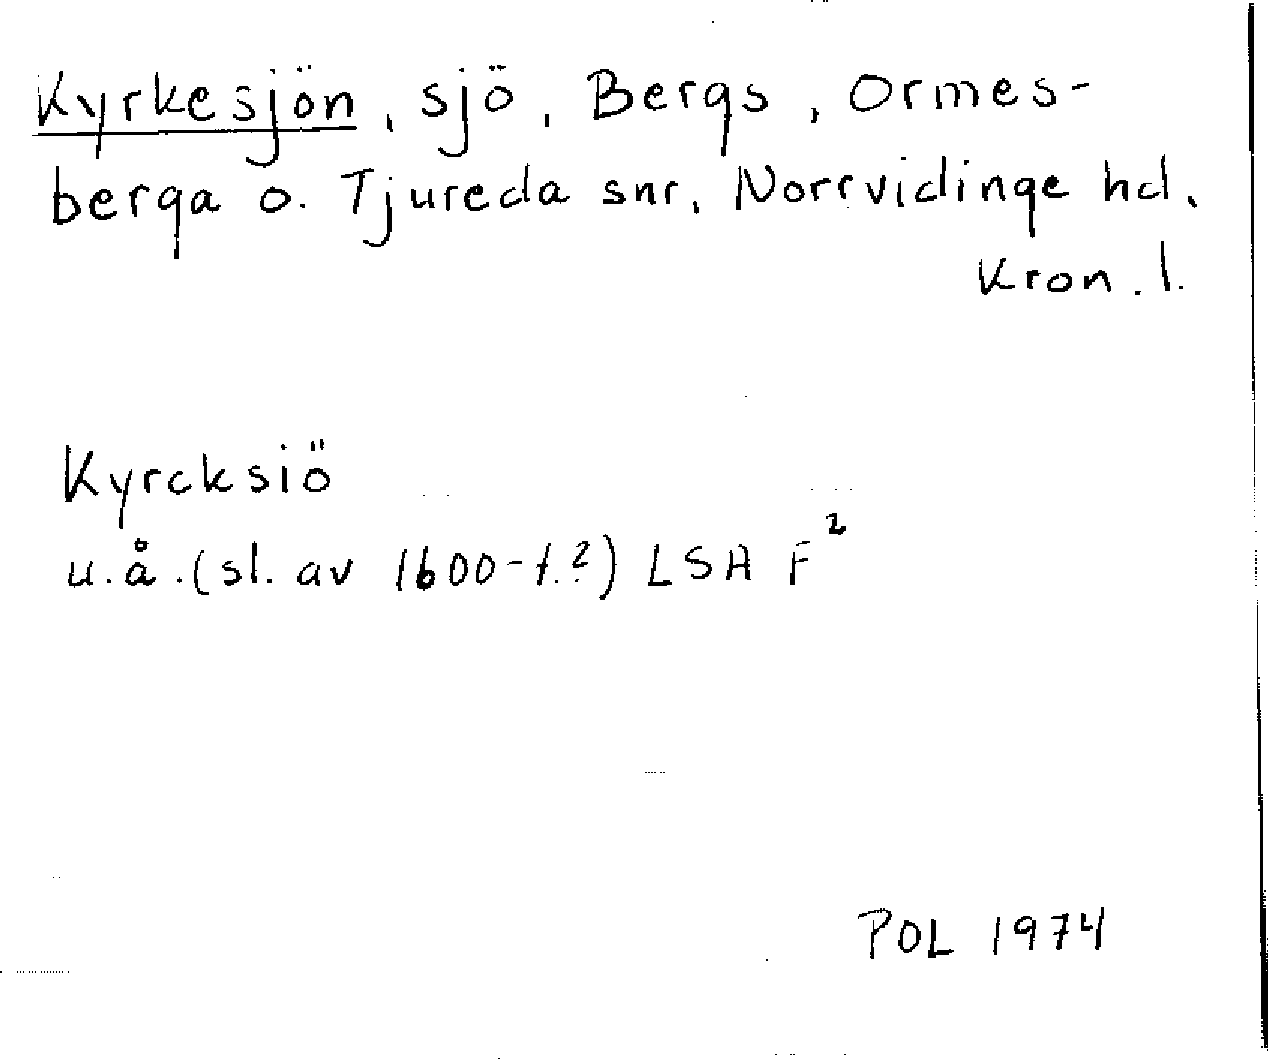 Kyrkesjön, sjö, Bergs, Ormes-
berga o. Tjureda snr, Norrvidinge hd,
Kron. l.
Kyrcksiö
u.å. (sl. av 1600-t.?) LSA F²
POL 1974